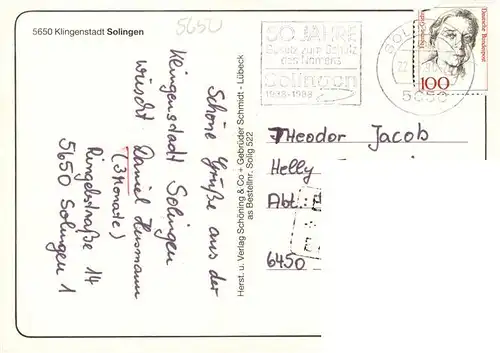 5650 Klingenstadt Solingen
5650
Schöne Grüße aus der
Klingenstadt Solingen
wünscht Daniel Husmann
(3 Monate)
Ringelstraße 14
5650 Solingen 1
Herst. u. Verlag Schöning & Co + Gebrüder Schmidt - Lübeck
as Bestellnr. Solig 522
50 JAHRE
Gesetz zum Schutz
des Namens
Solingen
1938-1988
SOLI
22
5650
Deutsche Bundespost
100
Theodor Jacob
Helly
Abt.
6450